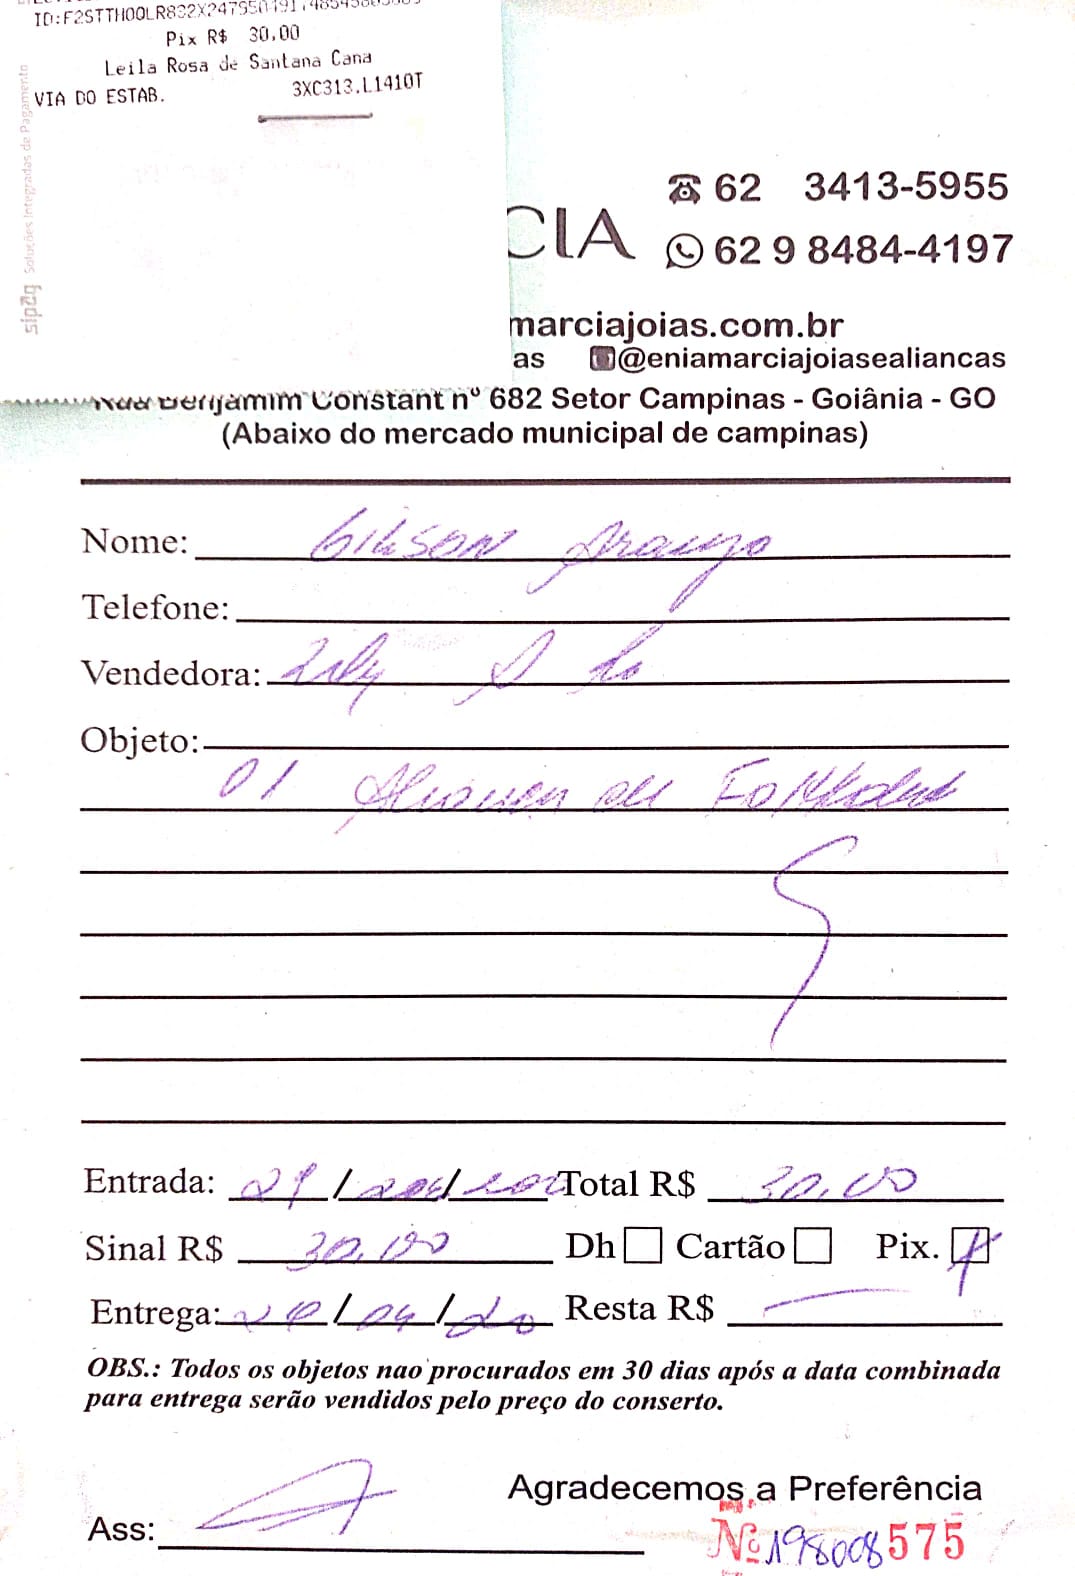 Pix R$ 30,00
Leila Rosa de Santana Cana
VIA DO ESTAB. 3XC313.L1410T
sipag Soluções Integradas de Pagamento
CIA
62 3413-5955
62 9 8484-4197
marciajoias.com.br
as @eniamarciajoiasealiancas
Rua Benjamim Constant nº 682 Setor Campinas - Goiânia - GO
(Abaixo do mercado municipal de campinas)
Nome: Gilson Araujo
Telefone:
Vendedora:
Objeto:
01
Entrada: Total R$ 30,00
Sinal R$ 30,00 Dh Cartão Pix.
Entrega: Resta R$
OBS.: Todos os objetos nao procurados em 30 dias após a data combinada
para entrega serão vendidos pelo preço do conserto.
Agradecemos a Preferência
Ass:
Nº 198008575